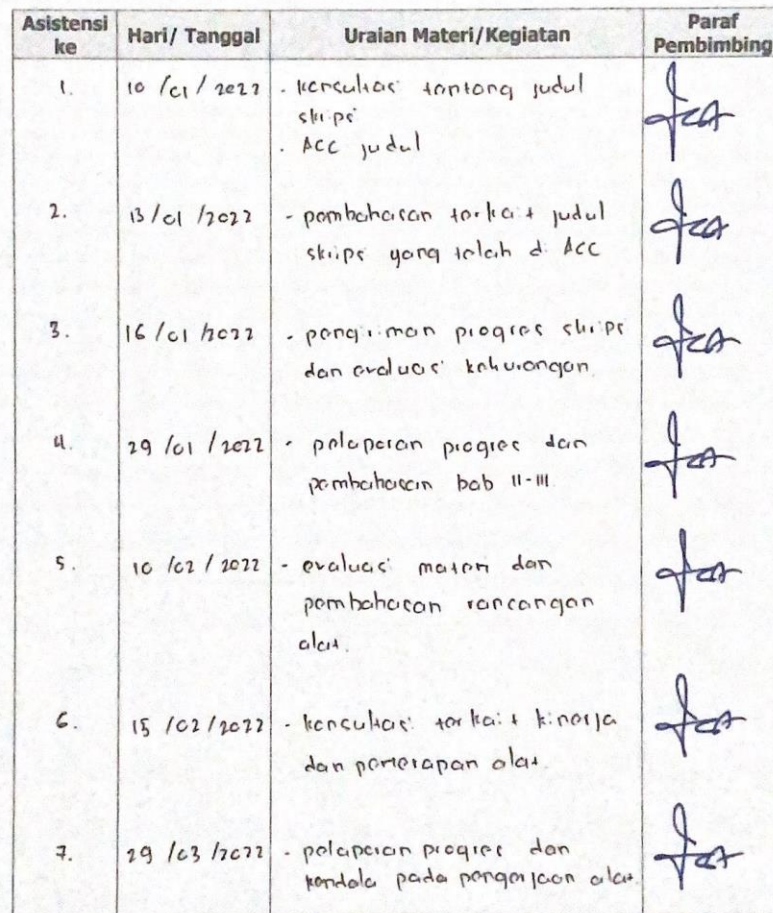 Asistensi ke Hari/ Tanggal Uraian Materi/Kegiatan Paraf Pembimbing
1. 10 /01 / 2022 - konsultasi tentang judul
skripsi
- ACC judul
2. 13/01 /2022 - pembahasan terkait judul
skripsi yang telah di ACC
3. 16 /01 /2022 - pengiriman progres skripsi
dan evaluasi kekurangan.
4. 29 /01 / 2022 - pelaporan progres dan
pembahasan bab II-III.
5. 10 /02 / 2022 - evaluasi materi dan
pembahasan rancangan
alat.
6. 15 /02/2022 - konsultasi terkait kinerja
dan penerapan alat.
7. 29 /03 /2022 - pelaporan progres dan
kendala pada pengerjaan alat.